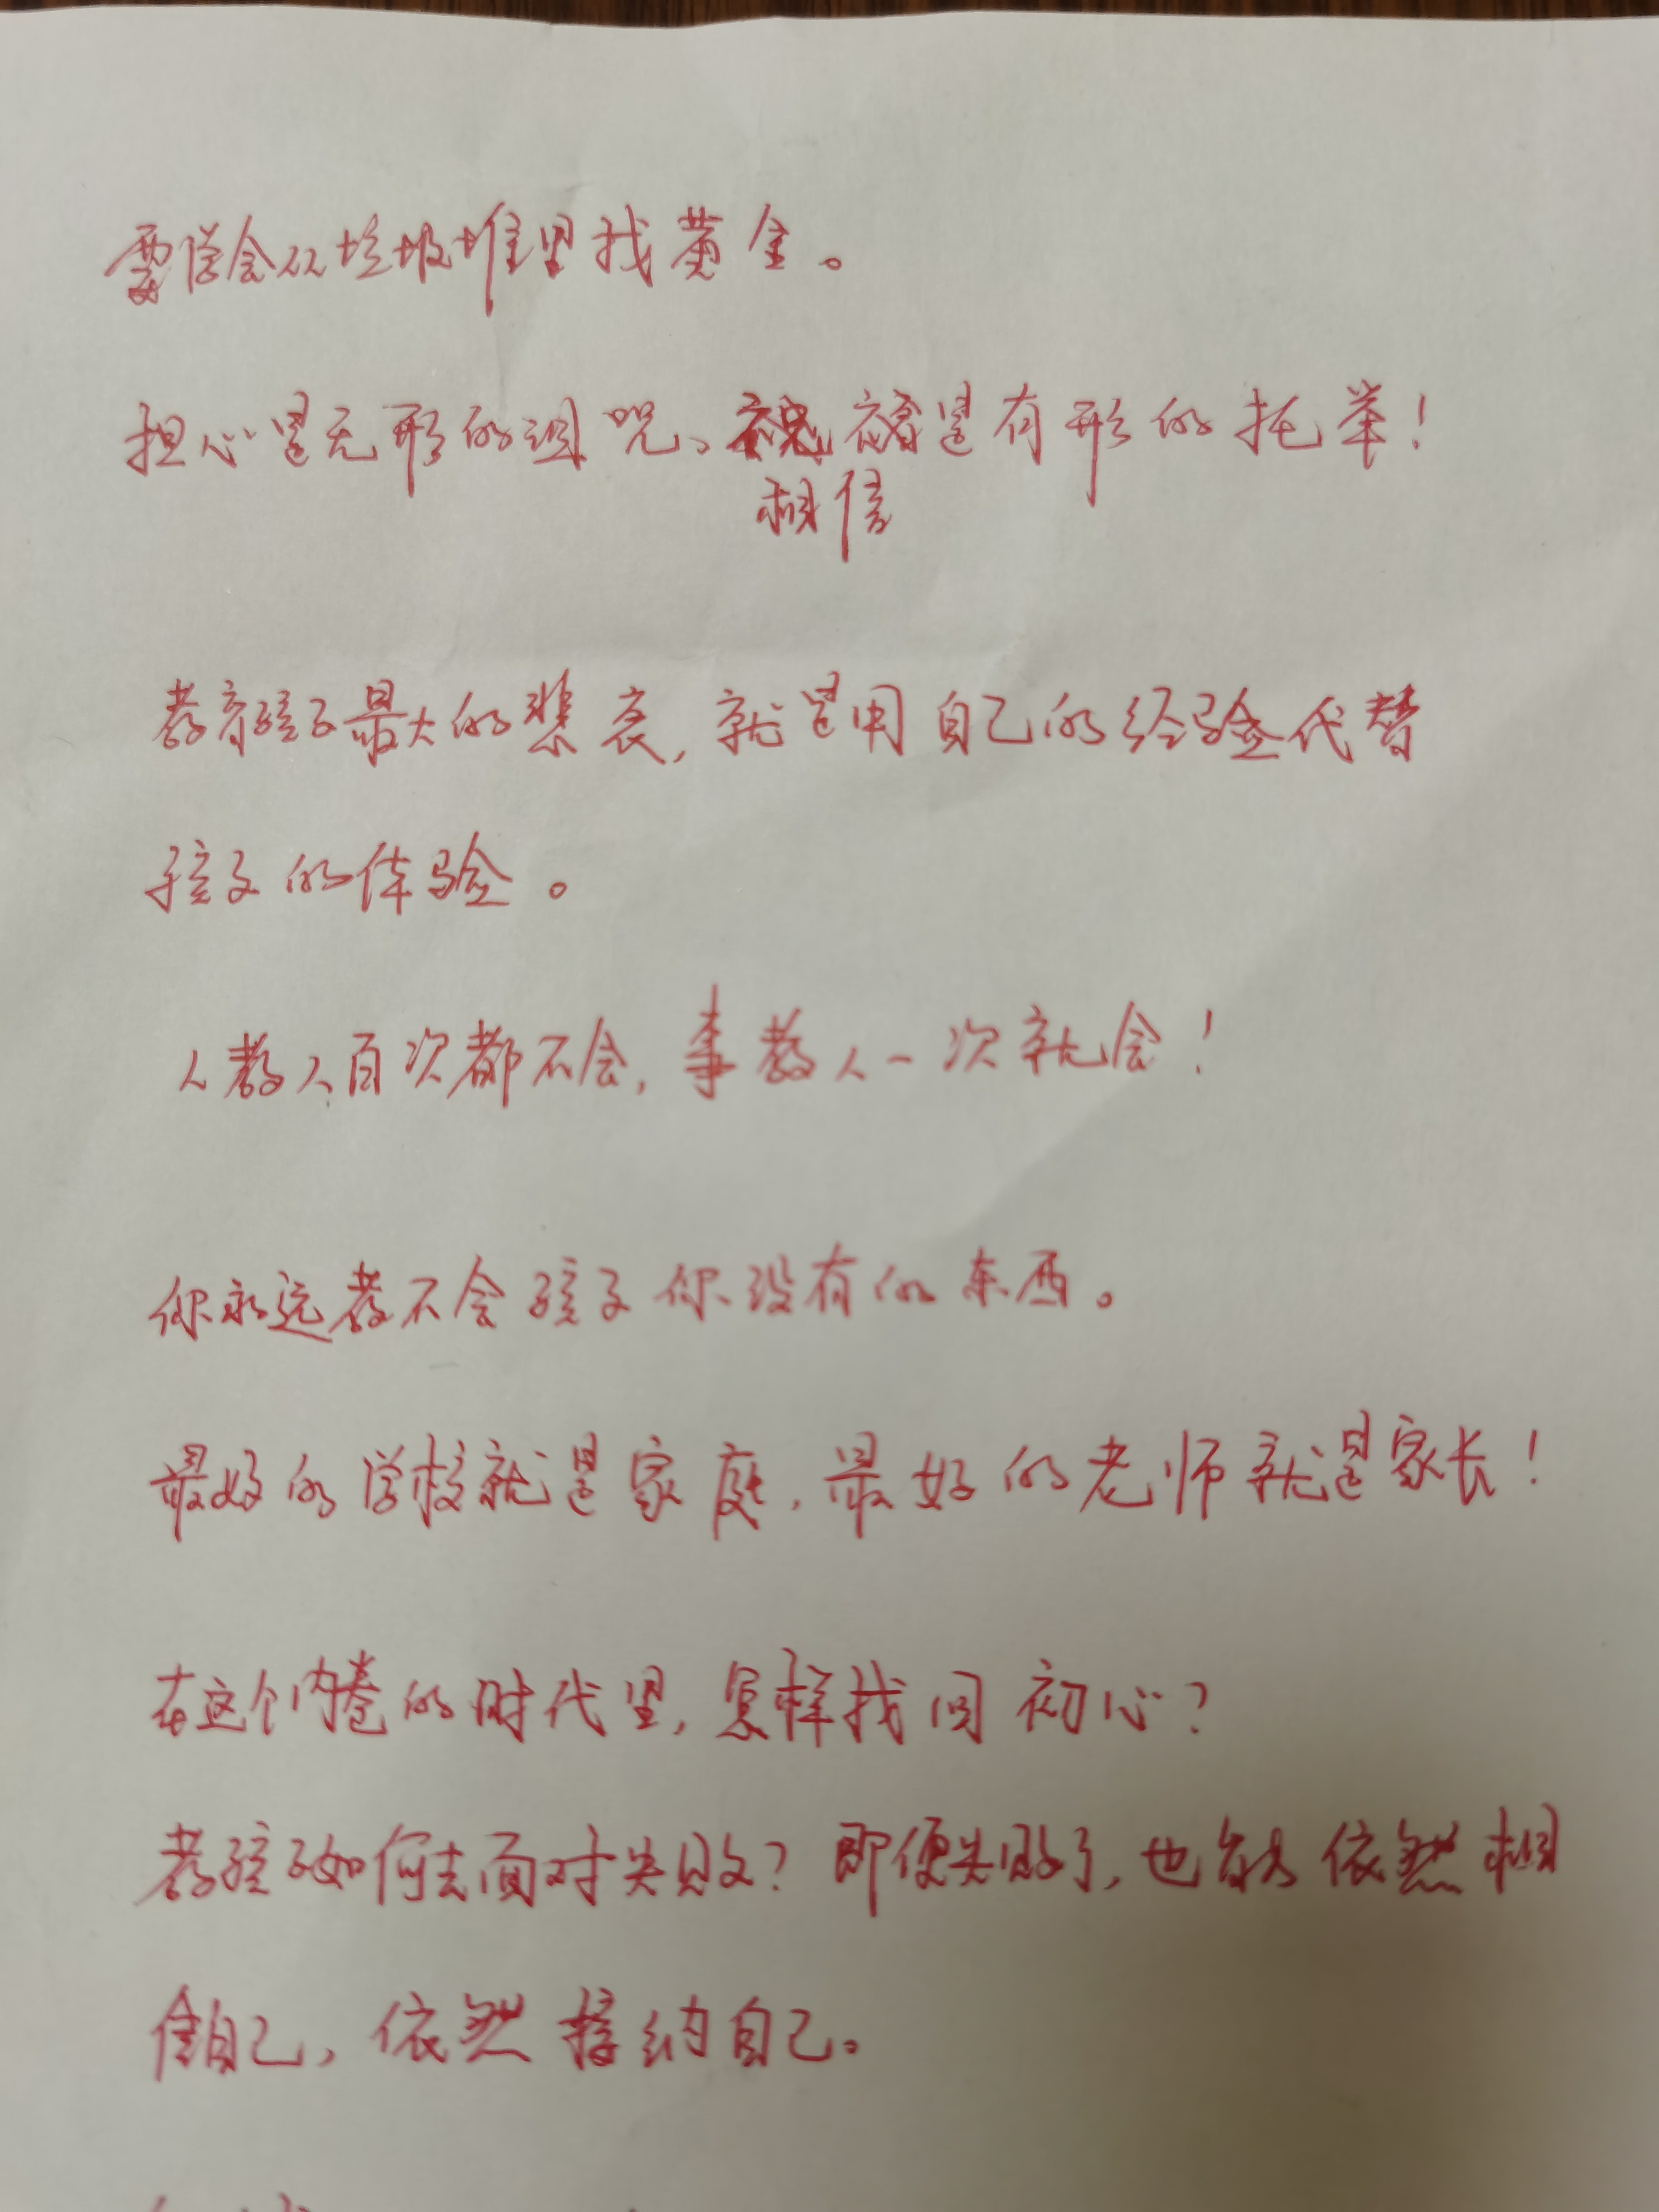 要学会从垃圾堆里找黄金。
担心是无形的诅咒、祝福是有形的托举！
相信
教育孩子最大的悲哀，就是用自己的经验代替
孩子的体验。
人教人百次都不会，事教人一次就会！
你永远教不会孩子你没有的东西。
最好的学校就是家庭，最好的老师就是家长！
在这个内卷的时代里，怎样找回初心？
教孩子如何去面对失败？即便失败了，也能依然相
信自己，依然接纳自己。